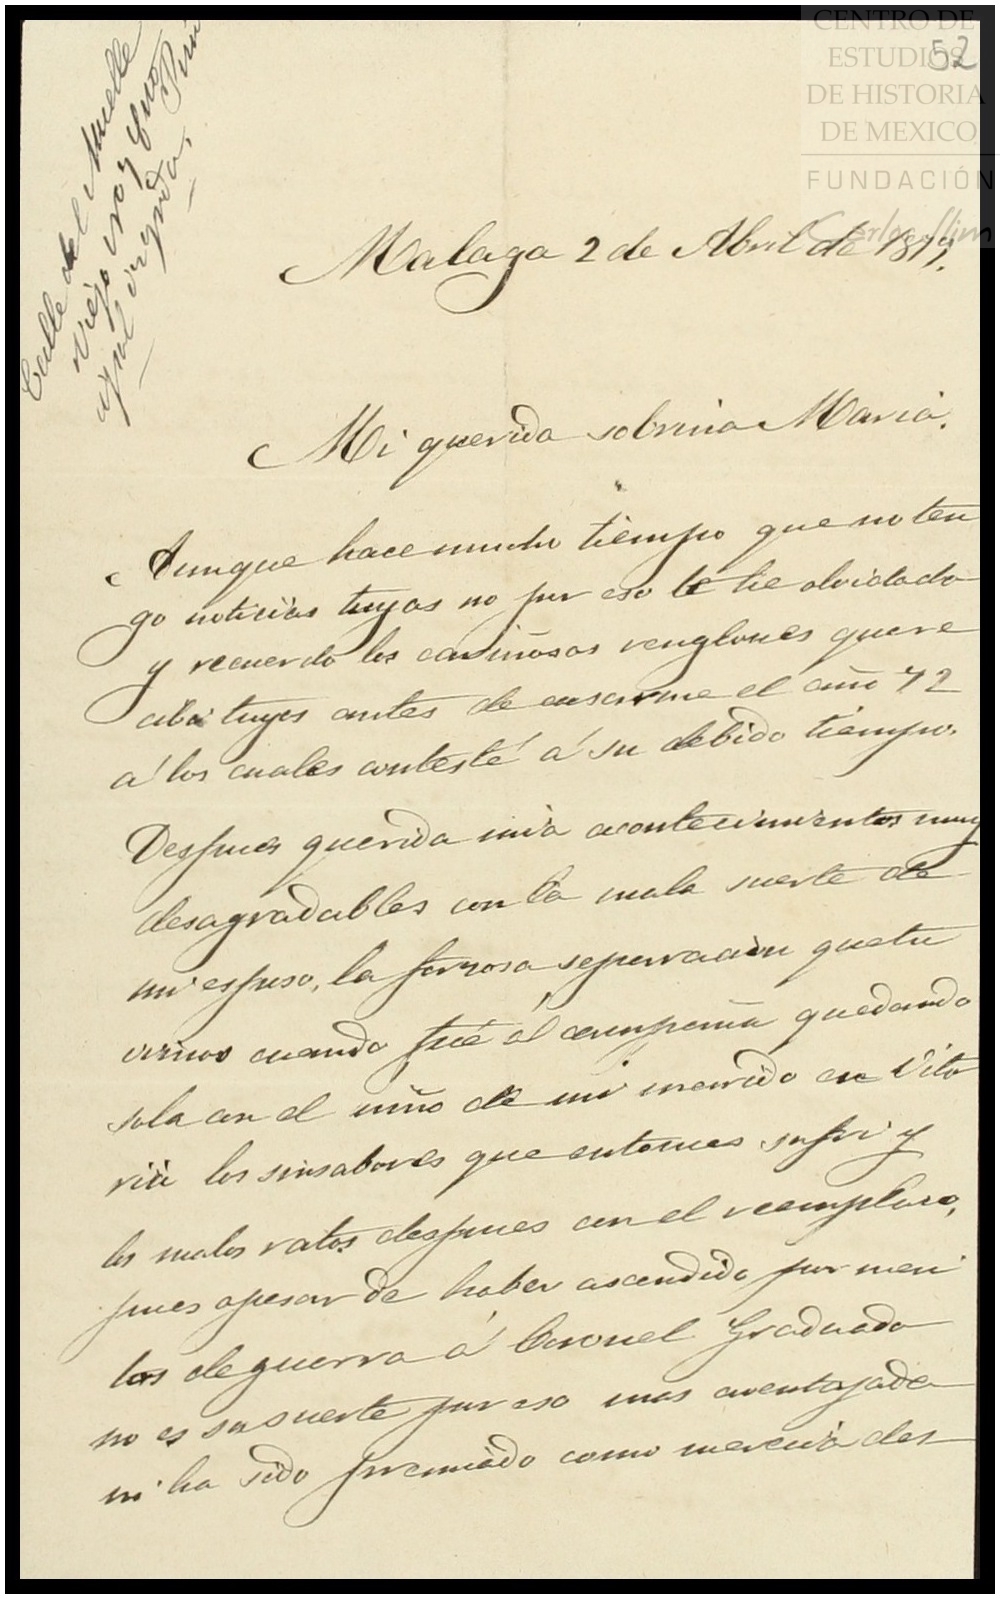 CENTRO DE
ESTUDIOS
DE HISTORIA
DE MEXICO
FUNDACIÓN
Carlos Slim
52
Calle del Muelle
viejo nº 17 y
izqda.
Malaga 2 de Abril de 1877.
Mi querida sobrina Maria.
Aunque hace mucho tiempo que no ten
go noticias tuyas no por eso te he olvidado
y recuerdo los cariñosos renglones que re
cibi tuyos antes de casarme el año 72
á los cuales contesté á su debido tiempo.
Despues querida mia acontecimientos muy
desagradables con la mala suerte de
mi esposo, la forzosa separacion que tu
vimos cuando fué al campaña quedando
sola con el niño de mi marido en Vito
ria los sinsabores que entonces sufri y
los malos ratos despues con el reemplazo,
pues apesar de haber ascendido por meri
tos de guerra á Coronel Graduado
no es su suerte por eso mas aventajada
ni ha sido premiado como merecia des